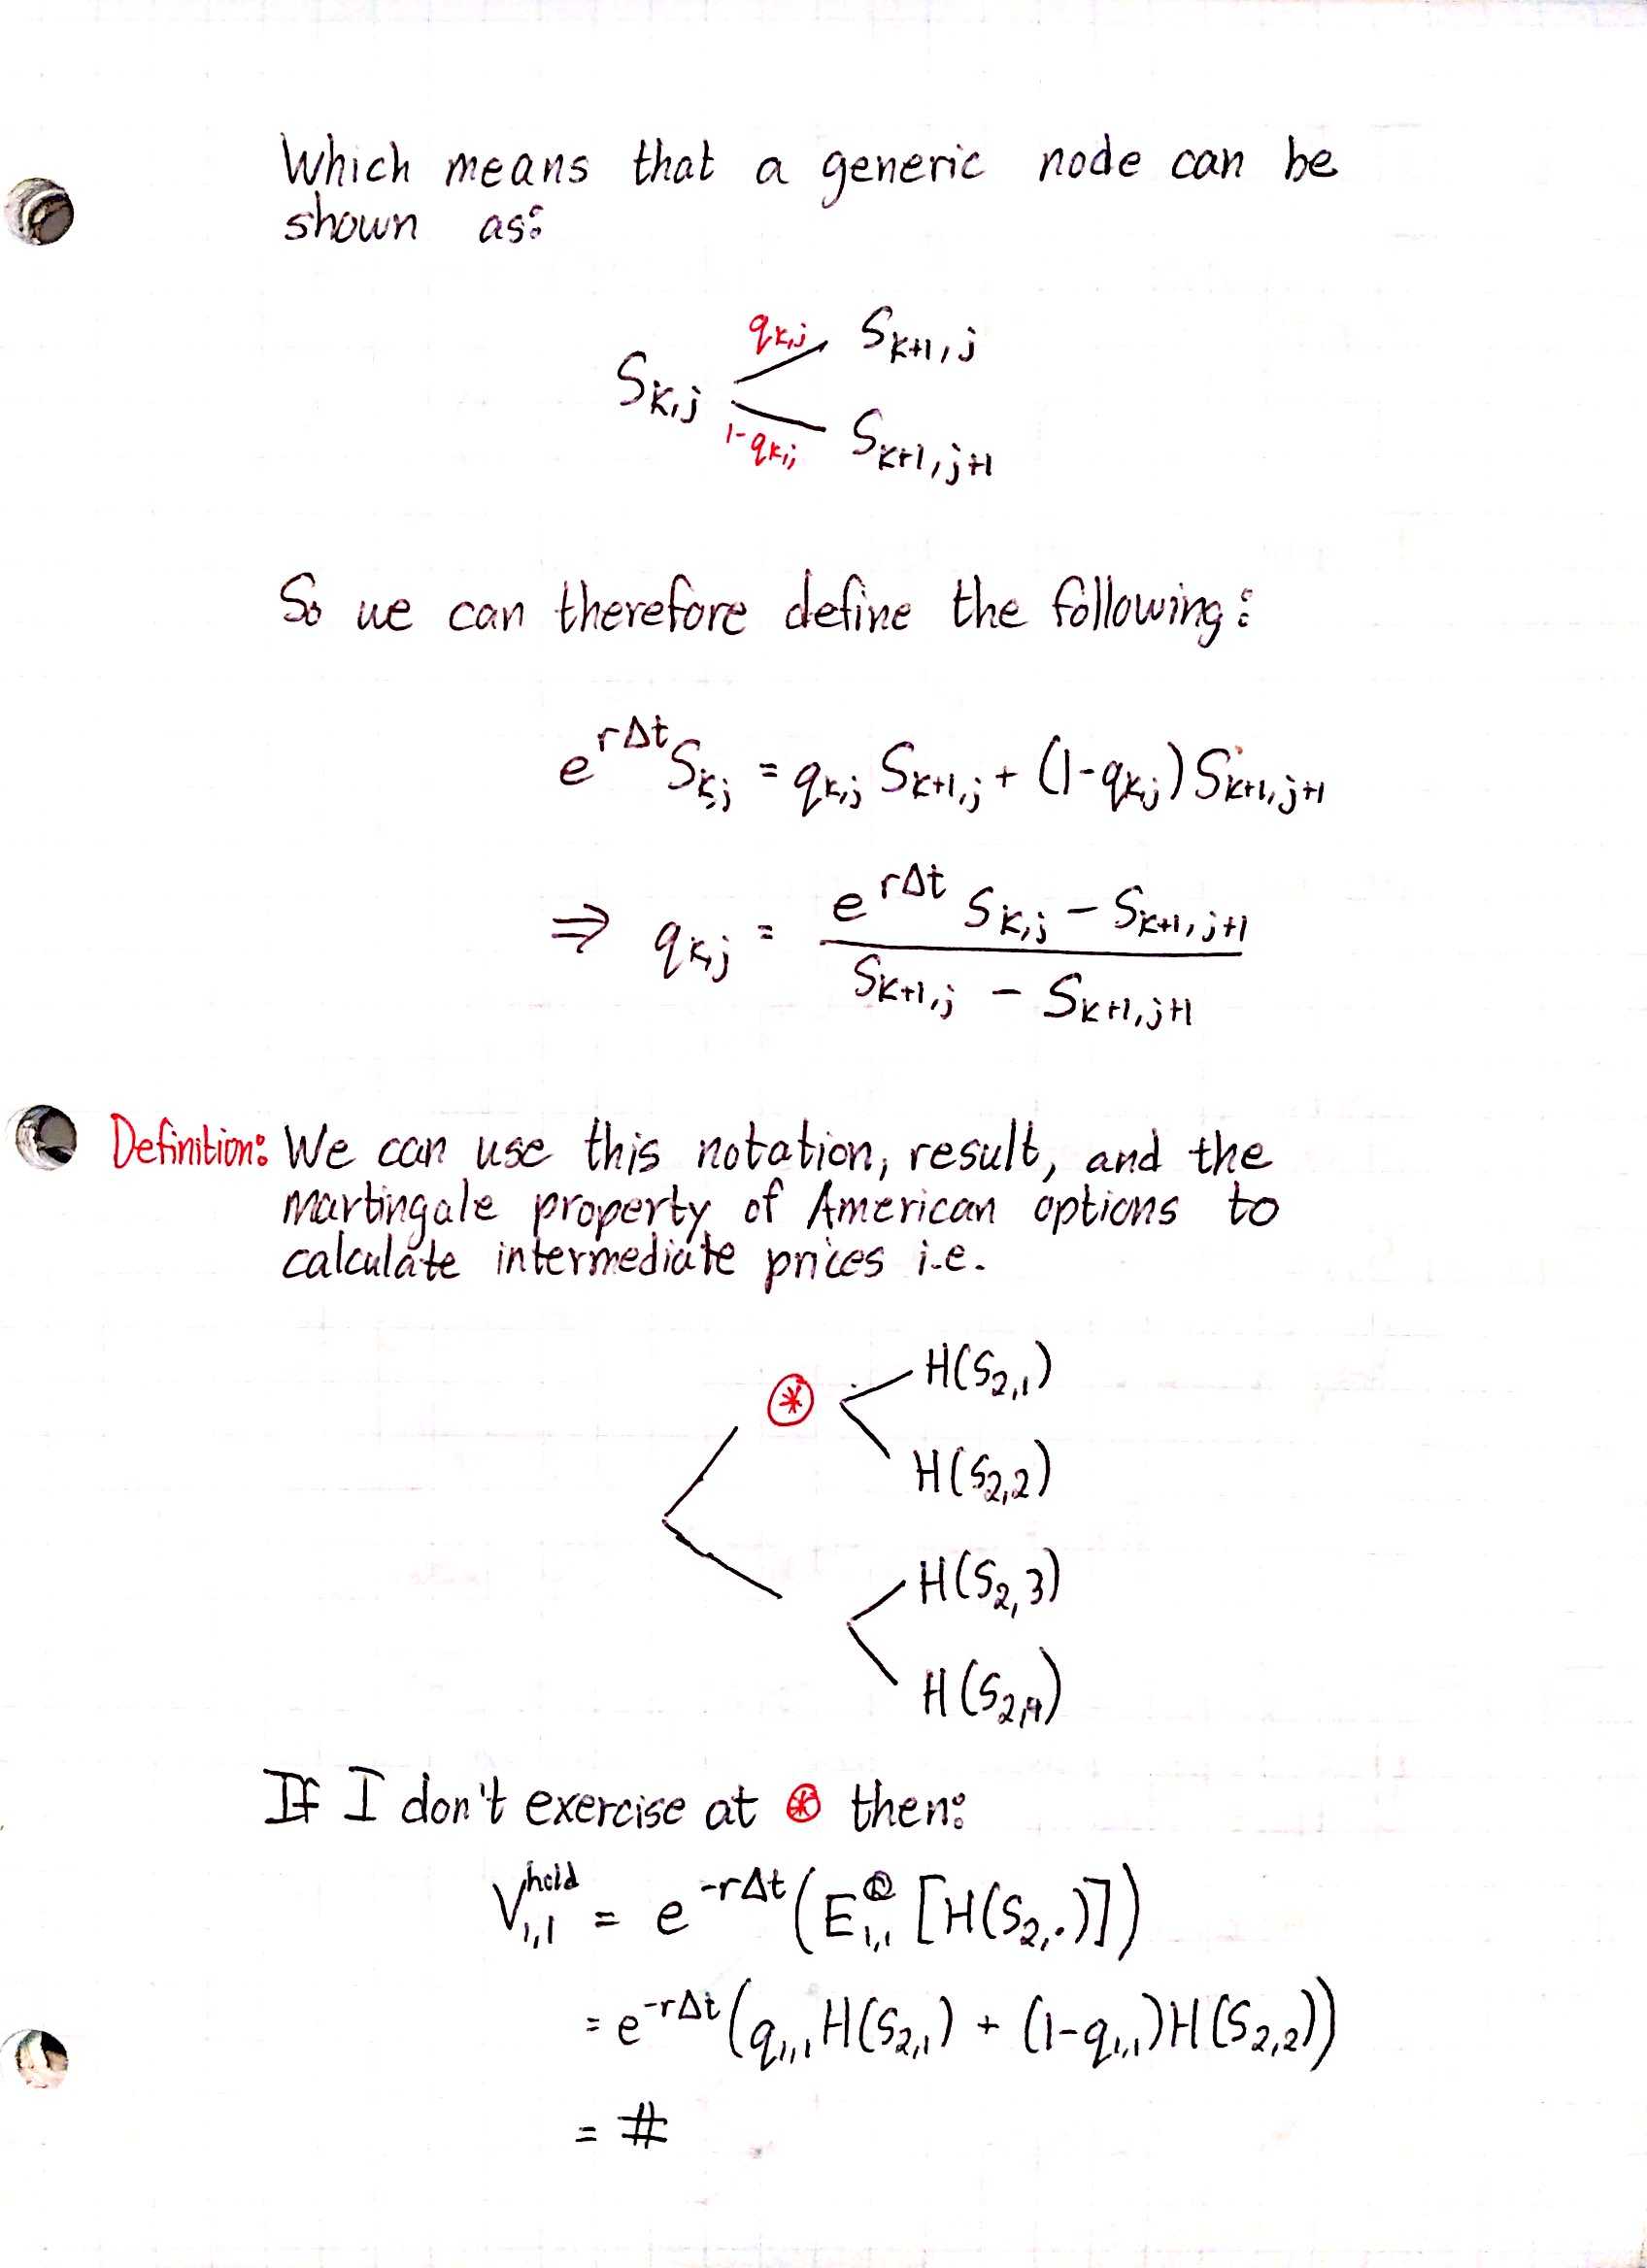 Which means that a generic node can be
shown as:
q_{k,j} S_{k+1,j}
S_{k,j}
1-q_{k,j} S_{k+1,j+1}
So we can therefore define the following:
e^{rΔt} S_{k,j} = q_{k,j} S_{k+1,j} + (1-q_{k,j}) S_{k+1,j+1}
⇒ q_{k,j} = \frac{e^{rΔt} S_{k,j} - S_{k+1,j+1}}{S_{k+1,j} - S_{k+1,j+1}}
Definition: We can use this notation, result, and the
martingale property of American options to
calculate intermediate prices i.e.
H(S_{2,1})
⊛
H(S_{2,2})
H(S_{2,3})
H(S_{2,4})
If I don't exercise at ⊛ then:
V_{1,1}^{hold} = e^{-rΔt}(E_{1,1}^{Q}[H(S_{2,·})])
= e^{-rΔt}(q_{1,1} H(S_{2,1}) + (1-q_{1,1})H(S_{2,2}))
= #